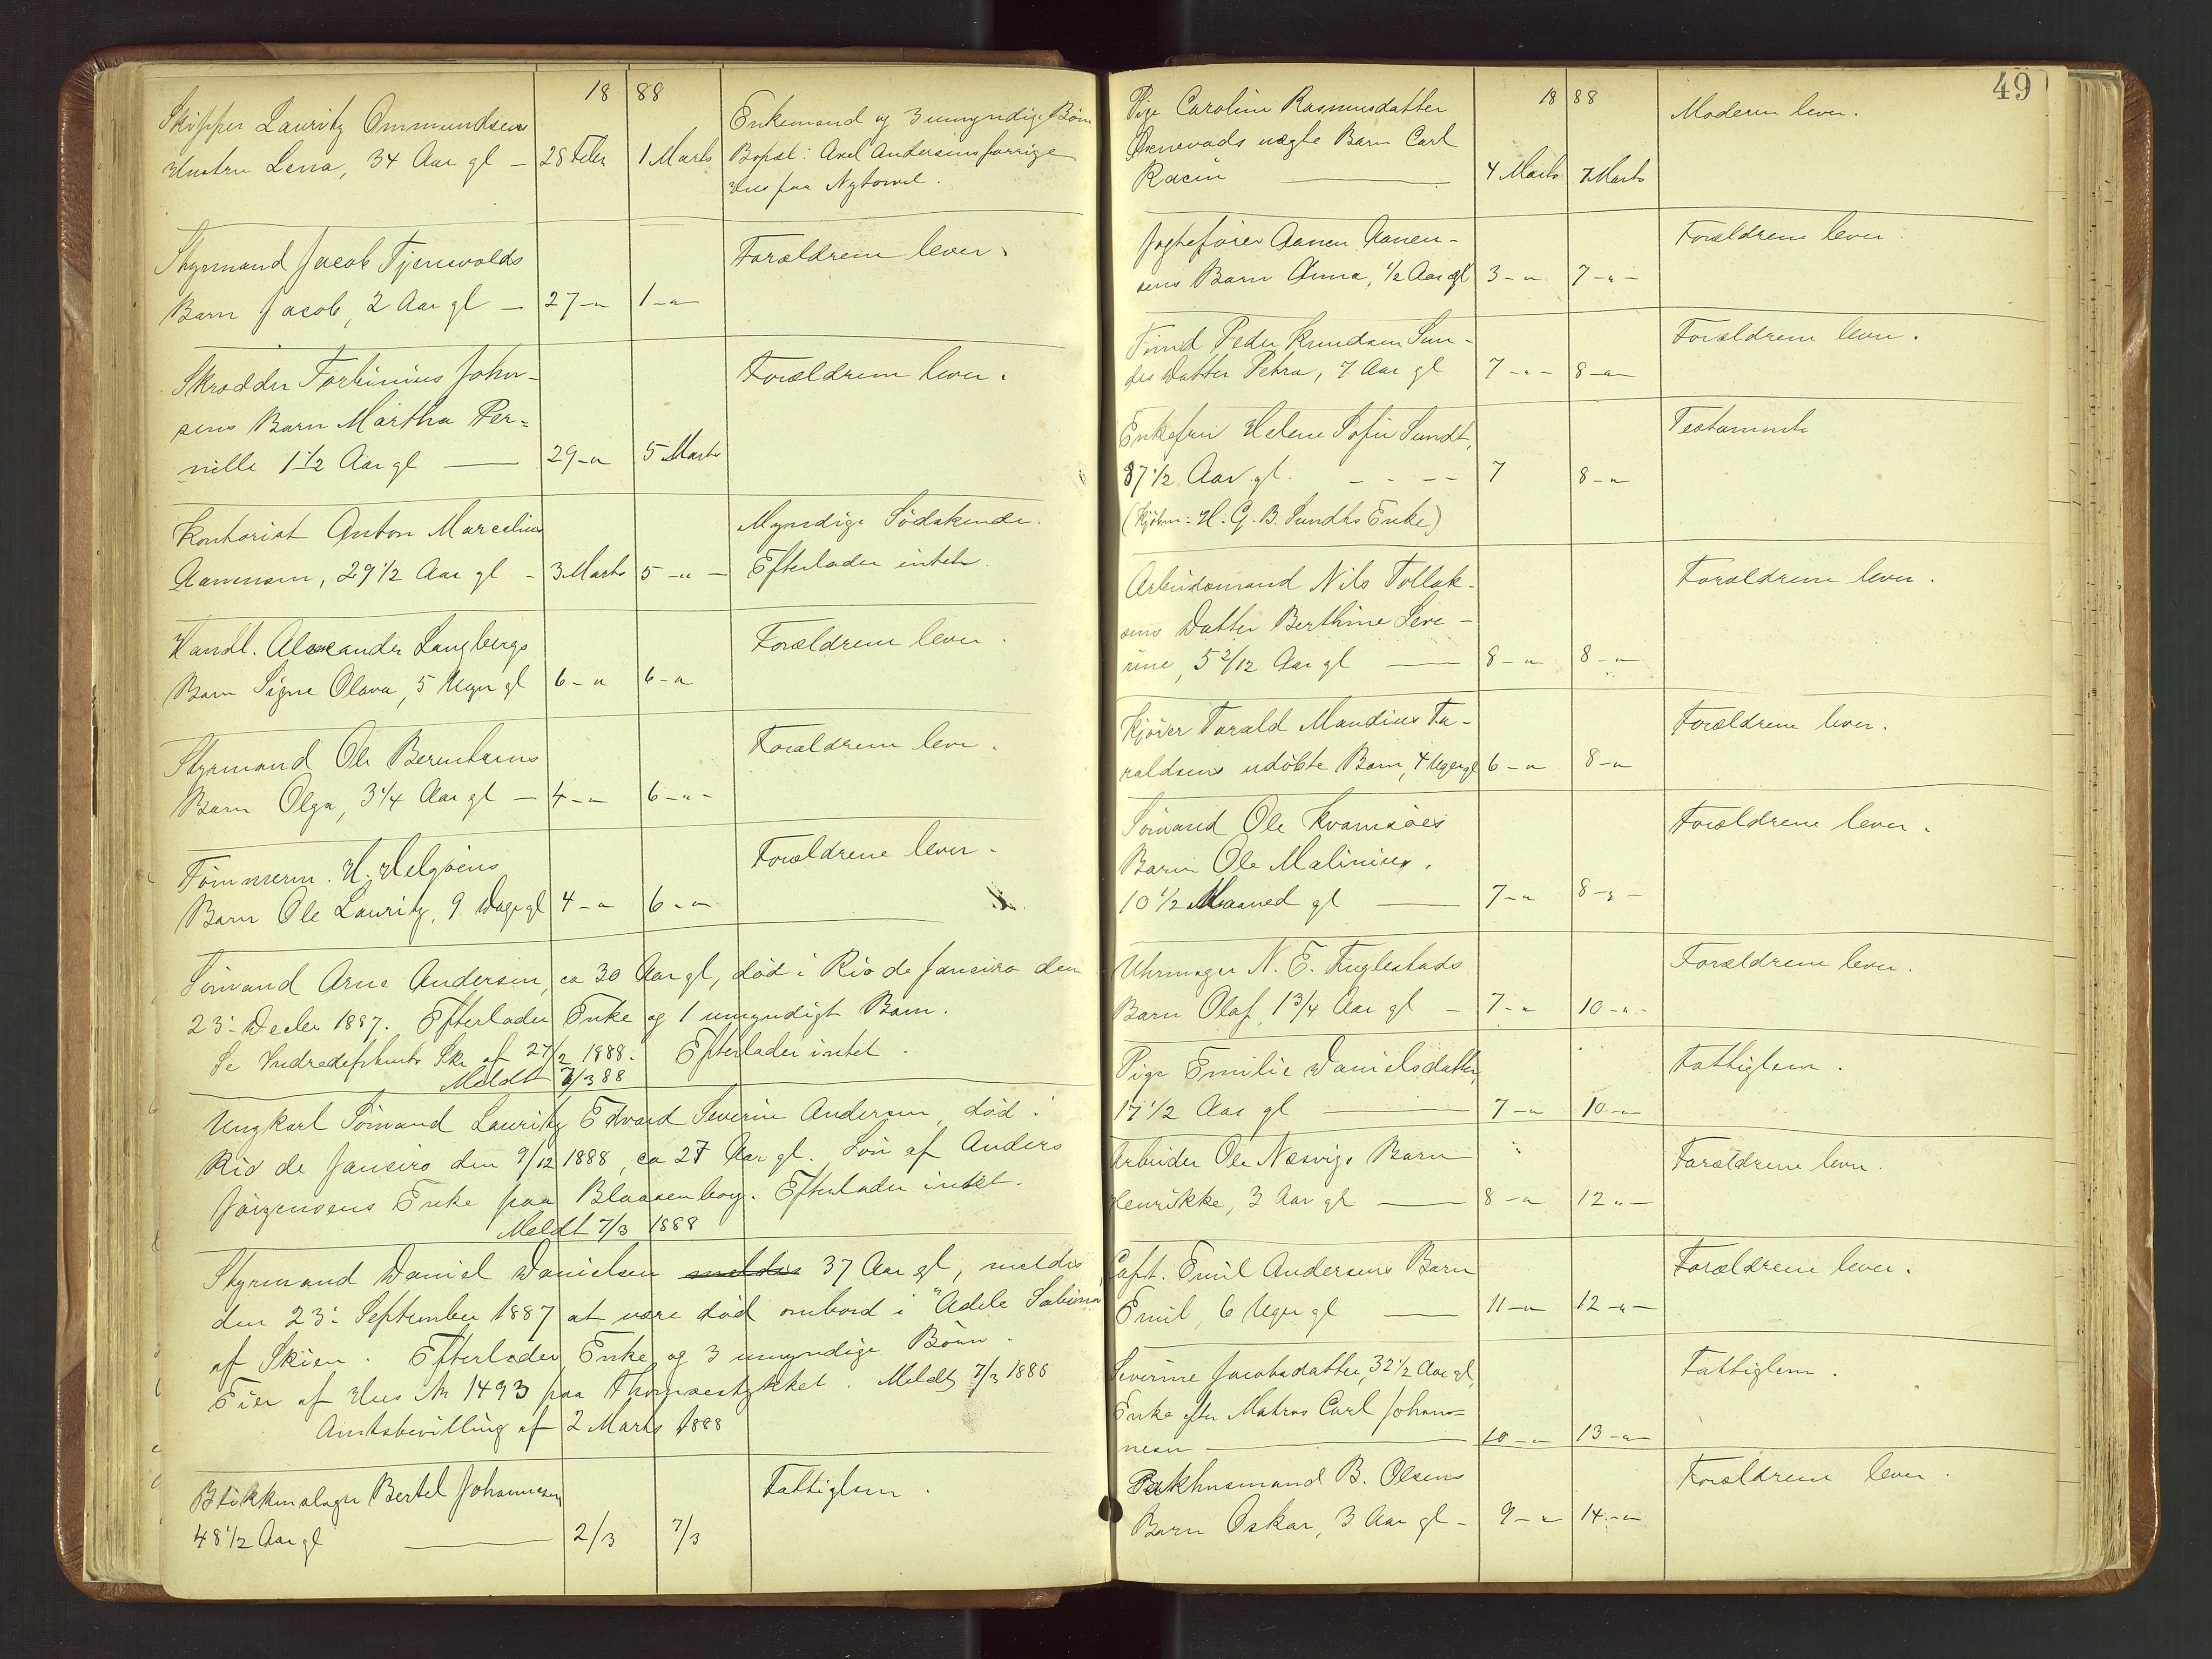 18 88
Skipper Lauritz Ommundsens
Hustru Lena, 34 Aar gl — 28 Febr 1 Marts
Enkemand og 3 umyndige Børn
Bopæl: Axel Andersens forrige
Hus paa Nytorvet.
Styrmand Jacob Tjensvolds
Barn Jacob, 2 Aar gl — 27 -"- 1 -"-
Forældrene lever.
Skrædder Torbinius John-
sens Barn Martha Per=
nille 1 1/2 Aar gl — 29 -"- 5 Marts
Forældrene lever.
Kontorist Anton Marcelius
Aanensen, 29 1/2 Aar gl - 3 Marts 5 -"-
Myndige Sødskende.
Efterlader intet.
Handl. Alexander Langbergs
Barn Signe Olava, 5 Uger gl 6 -"- 6 -"-
Forældrene lever.
Styrmand Ole Berentsens
Barn Olga, 3 1/4 Aar gl — 4 -"- 6 -"-
Forældrene lever.
Tømmerm. H. Helgøens
Barn Ole Lauritz, 9 Dage gl 4 -"- 6 -"-
Forældrene lever.
Sømand Arne Andersen, ca 30 Aar gl, død i Rio de Janeiro den
23: Decbr 1887. Efterlader Enke og 1 umyndigt Barn.
Se Indredepartments Skr. af 27/2 1888. Efterlader intet.
Meldt 7/3 88
Ungkarl Sømand Lauritz Edvard Severin Andersen, død i
Rio de Janeiro den 9/12 1888, ca 27 Aar gl. Søn af Anders
Jørgensens Enke paa Blaasenborg. Efterlader intet.
Meldt 7/3 1888
Styrmand Daniel Danielsen meldes 37 Aar gl, meldes
den 23: September 1887 at være død ombord i "Adele Sabina"
af Skien. Efterlader Enke og 3 umyndige Børn.
Eier af Hus № 1493 paa Thomasstykket. Meldt 7/3 1888
Amtsbevilling af 2 Marts 1888
Blikkenslager Bertel Johannesen
48 1/2 Aar gl — 2/3 7/3
Fattiglem.
49
18 88
Pige Caroline Rasmusdatter
uægte Barn Carl
— 4 Marts 7 Marts
Moderen lever.
Jagtefører Aanen Aanen-
sens Barn Anna, 1/2 Aar gl 3 -"- 7 -"-
Forældrene lever.
Peder Knudsen Sun-
des Datter Petra, 7 Aar gl 7 -"- 8 -"-
Forældrene lever.
Enkefru Helene Sofie Sundt,
87 1/2 Aar gl. - - - - 7 8 -"-
(Kjøbm: H. G. B. Sundts Enke)
Testamente
Arbeidsmand Nils Tollak-
sens Datter Berthine Seve-
rine, 5 2/12 Aar gl — 8 -"- 8 -"-
Forældrene lever.
Kjører Torald Maudius Ta-
raldsens udøbte Barn, 4 Uger gl 6 -"- 8 -"-
Forældrene lever.
Sømand Ole Kvamsøes
Barn Ole Malinius,
10 1/2 Maaned gl — 7 -"- 8 -"-
Forældrene lever.
Uhrmager N. E. Fuglestads
Barn Olaf, 1 3/4 Aar gl — 7 -"- 10 -"-
Forældrene lever.
Pige Emilie Danielsdatter,
17 1/2 Aar gl — 7 -"- 10 -"-
Fattiglem.
Arbeider Ole Næsvigs Barn
Henrikke, 3 Aar gl — 8 -"- 12 -"-
Forældrene lever.
Capt. Emil Andersens Barn
Emil, 6 Uger gl — 11 -"- 12 -"-
Forældrene lever.
Severine Jacobsdatter, 32 1/2 Aar gl,
Enke efter Matros Carl Johan=
nesen — 10 -"- 13 -"-
Fattiglem.
Pakhusmand B. Olsens
Barn Oskar, 3 Aar gl - 9 -"- 14 -"-
Forældrene lever.